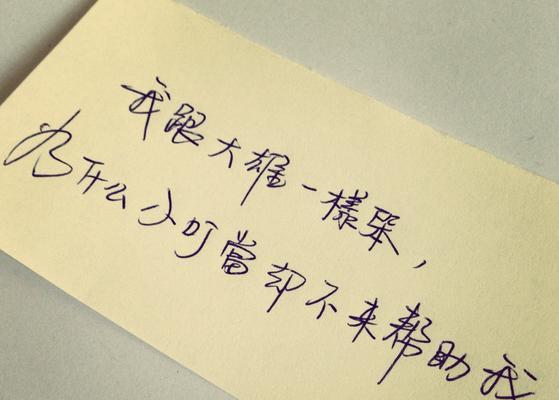 我跟大雄一樣笨，
为什么小叮當却不来帮助我